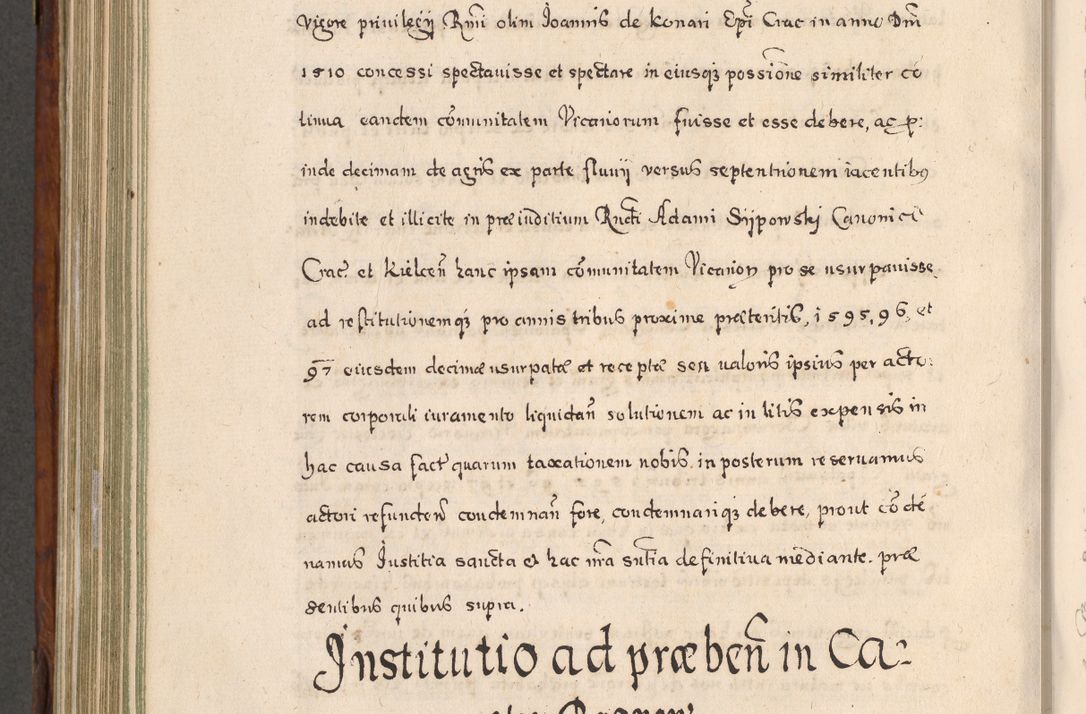 vigore privilegÿ Rmi olim Joannis de Konari Epi Crac in anno Dm
1510 concessi spectauisse et spectare in eiusqꝫ possione similiter cō
tinua eandem cōmunitatem Vicariorum fuisse et esse debere, ac p:
inde decimam de agris ex parte fluuÿ versus septentrionem iacentibꝰ
indebite et illicite in præiuditium Rndi Adami Sÿpowskj Canonici
Crac et Kielceñ hanc ipsam cōmunitatem Vicarioꝝ pro se usurpauisse
ad restitutionemqꝫ pro annis tribus proxime præteritis, 1595, 96, et
97 eiusdem decimæ usurpatæ et receptæ seu valoris ipsius per acto:
rem corporali iuramento liquidañ solutionem ac in litis expensis in
hac causa fact quarum taxationem nobis in posterum reseruamus
actori refunden condemnañ fore, condemnariqꝫ debere, prout cōdē
namus Justitia sancta ex hac nra sntia definitiua mediante. præ
sentibus quibus supra.
Institutio ad præbeñ in Ca: